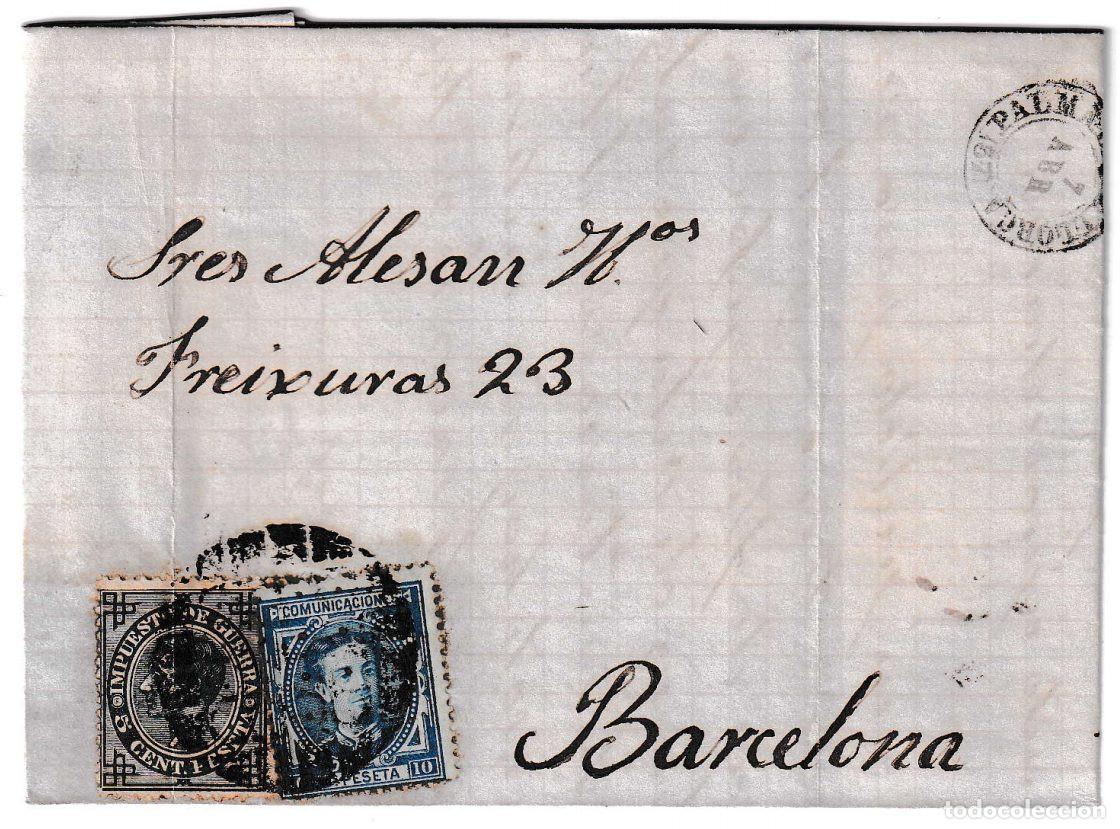 PALMA MALLORCA
7
ABR
187
Sres Alesan H.os
Freixuras 23
COMUNICACIONES
PESETA 10
IMPUESTO DE GUERRA
5 CENT. PESETA
Barcelona
todocoleccion